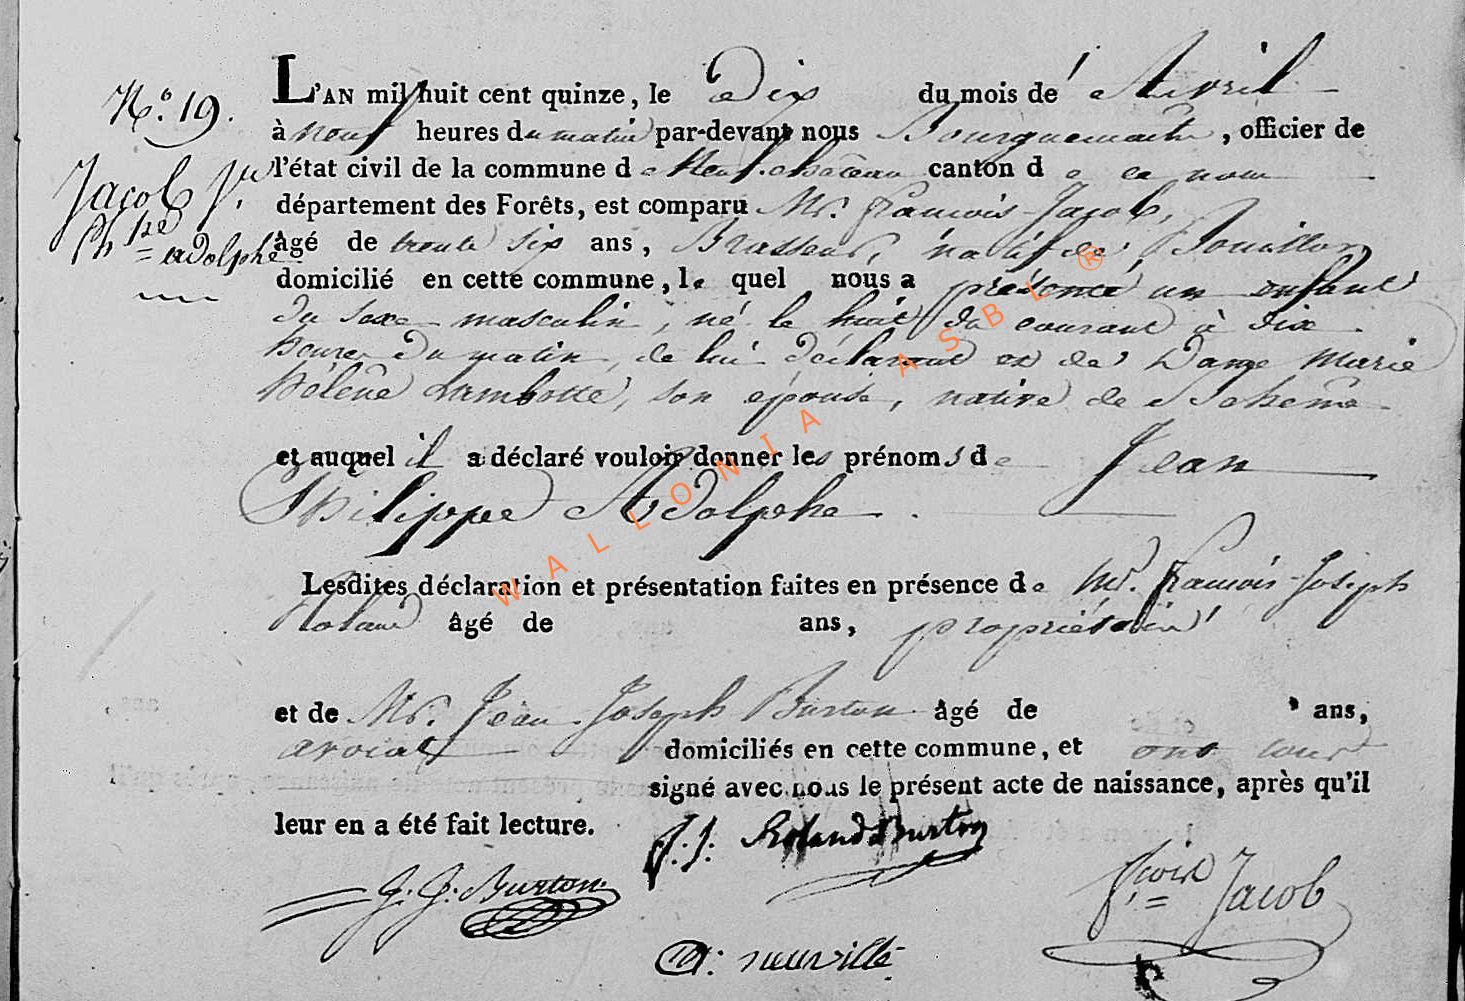 N.° 19.
Jacob J.n
Ph.ppe = adolphe
L'AN mil huit cent quinze, le Dix du mois de Avril
à neuf heures du matin par-devant nous Bourguemaitre, officier de
l'état civil de la commune de Neufchateau canton de ce nom
département des Forêts, est comparu Mr. François Jacob,
âgé de trente six ans, Brasseur, natif de Bouillon
domicilié en cette commune, le quel nous a présenté un enfant
du sexe masculin, né le huit du courant à dix
heures du matin, de lui déclarant et de Dame Marie
Hélène Lambotte, son épouse, native de Ochême
et auquel il a déclaré vouloir donner les prénoms de Jean
Philippe Adolphe.
Lesdites déclaration et présentation faites en présence de Mr. François-Joseph
Roland âgé de ans, propriétaire
et de Mr. Jean Joseph Burton âgé de ans,
avocat domiciliés en cette commune, et ont tous
signé avec nous le présent acte de naissance, après qu'il
leur en a été fait lecture.
f: j: Roland Burton
J. J. Burton
f.çois = Jacob
neuville
WALLONIA ASBL ®